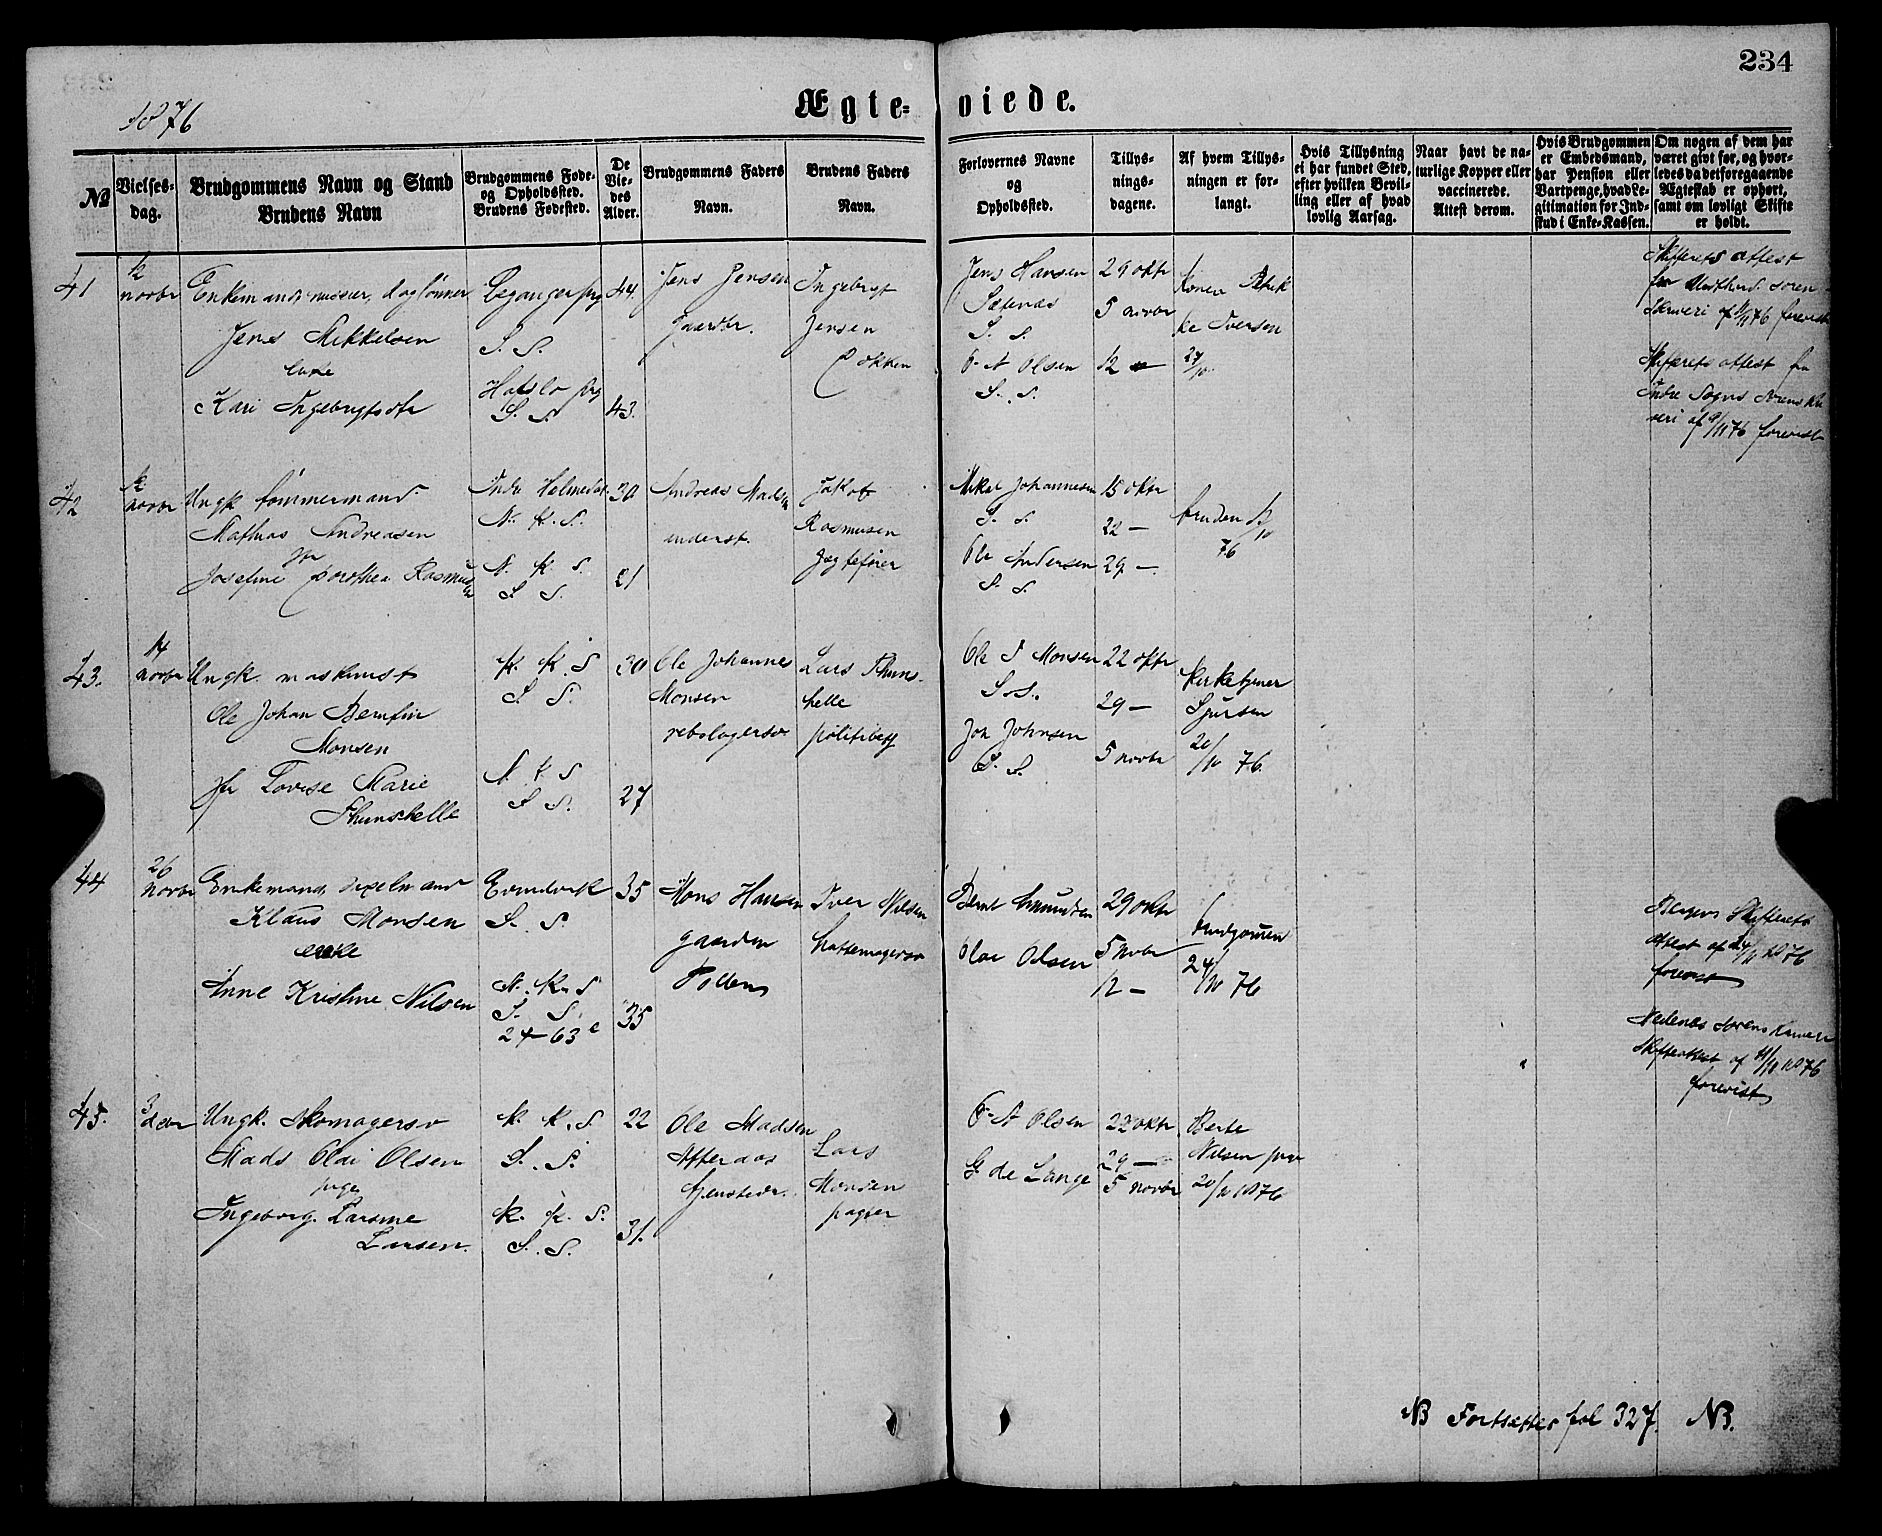 234
1876
Ægte=viede.
№
Vielses=
dag.
Brudgommens Navn og Stand
Brudens Navn
Brudgommens Føde=
og Opholdssted.
Brudens Fødested.
De
Vie=
des
Alder.
Brudgommens Faders
Navn.
Brudens Faders
Navn.
Forlovernes Navne
og
Opholdssted.
Tillys=
nings=
dagene.
Af hvem Tillys=
ningen er for=
langt.
Hvis Tillysning
ei har fundet Sted,
efter hvilken Bevil=
ling eller af hvad
lovlig Aarsag.
Naar havt de na=
turlige Kopper eller
vaccinerede.
Attest derom.
Hvis Brudgommen
er Embedsmand,
har Pension eller
Vartpenge, hvad Le=
gitimation for Ind=
skud i Enke=Kassen.
Om nogen af dem har
været givt før, og hvor=
ledes da det foregaaende
Ægteskab er ophørt,
samt om lovligt Skifte
er holdt.
41
12
novbr
Enkemand daglønner
Jens Mikkelsen
enke
Kari Ingebrigtsdtr
S. S.
Hafslo prg
S. S.
44.
43.
Jens Jensen
gaardbr.
Ingebrgt
Jensen
Jens Hansen
S. S.
O. A Olsen
S. S.
29 oktr
5 novbr
12 —
Konen
Iversen
24/10
Skifterets attest
skriveri af 11/11 76 forevist
Skifterets attest fra
Indre Sogns Sorenskri
veri af 9/11 76 forevist
42
12
novbr
Ungk tømmermand
Mathias Andreasen
pge
Josefine Dorothea Rasmusen
N. K. S.
N. K. S.
S. S.
30
21
Andreas Madsen
inderst
Jakob
Rasmusen
Jægtefører
Mikal Johannesen
S. S.
Ole Andersen
S. S.
15 oktr
22 —
29 —
bruden 12/10
76
43.
14
novbr
Ungk. maskinist
Ole Johan Bernfin
Monsen
jfr Lovise Marie
Thunshelle
K. K. S
S S.
N. K S
S S.
30
27
Ole Johannes
Monsen
rebslagersv
Lars Thuns-
helle
politibetj
Ole J Monsen
S. S.
Jon Johnsen
S. S.
22 oktr
29 —
5 novbr
Kirketjener
Sjursen
20/10 76
44
26
novbr
Enkemand
Klaus Monsen
enke
Anne Kristine Nilsen
Evindvik
S. S.
N. K. S
S. S.
24-63 c
35
35
Mons Hansen
gaardm
Iver Nilsen
hattemagersv
Bernt Amundsen
Olai Olsen
29 oktr
5 novbr
12 —
brudgomen
24/10 76
Bergens Skifterets
attest af 24/11 1876
forevist
Nedenæs Sorenskriveri
Skifteattest af 11/11 1876
forevist
45.
3
decbr
Ungk. Skomagersv
Mads Olai Olsen
pige
Ingeborg Larsine
Larsen.
K. K. S
S. S.
K. K. S.
S. S.
22
31.
Ole Madsen
Lars
Monsen
O. A Olsen
G de Lange
22 oktr
29 —
5 novbr
Berte
Nilsen
20/10 1876
NB Fortsættes fol 327. NB.